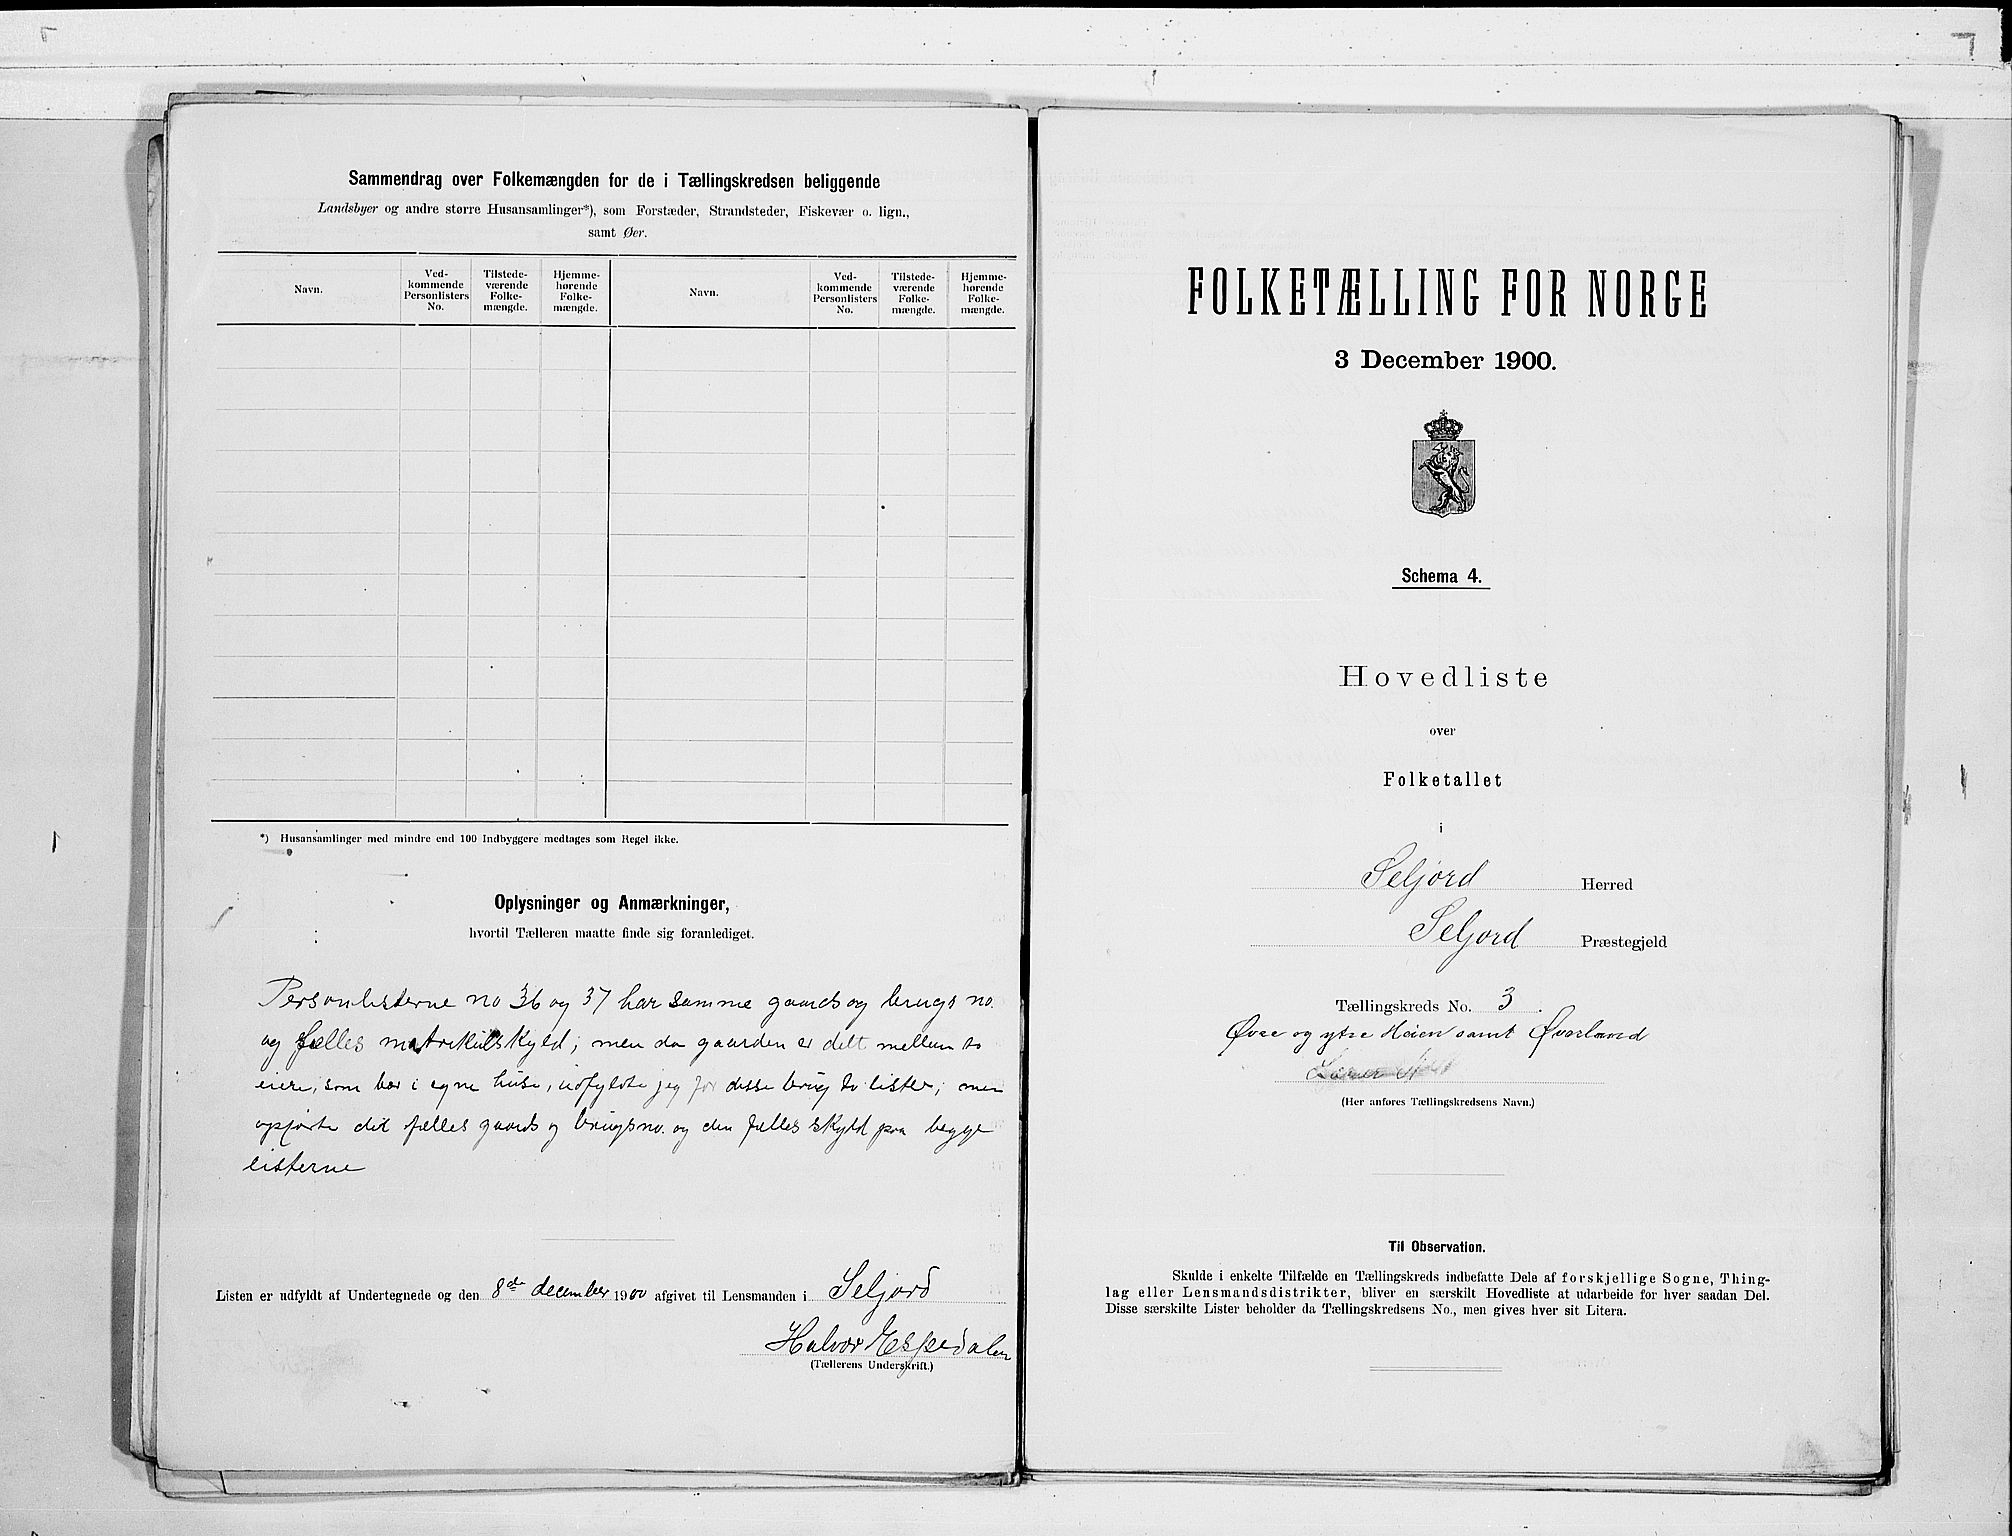 Sammendrag over Folkemængden for de i Tællingskredsen beliggende
Landsbyer og andre større Husansamlinger*), som Forstæder, Strandsteder, Fiskevær o. lign.,
samt Øer.
Navn.
Ved-
kommende
Personlisters
No.
Tilstede-
værende
Folke-
mængde.
Hjemme-
hørende
Folke-
mængde.
Navn.
Ved-
kommende
Personlisters
No.
Tilstede-
værende
Folke-
mængde.
Hjemme-
hørende
Folke-
mængde.
*) Husansamlinger med mindre end 100 Indbyggere medtages som Regel ikke.
Oplysninger og Anmærkninger,
hvortil Tælleren maatte finde sig foranlediget.
Personlisterne no 36 og 37 har samme gaards og brugs no.
og fælles matrikulskyld; men da gaarden er delt mellem to
eiere, som bor i egne huse, udfyldte jeg for disse brug to lister; men
opførte det fælles gaards og brugsno. og den fælles skyld paa begge
listerne
Listen er udfyldt af Undertegnede og den 8de december 1900 afgivet til Lensmanden i Seljord
Halvor Espedalen
(Tællerens Underskrift.)
FOLKETÆLLING FOR NORGE
3 December 1900.
Schema 4.
Hovedliste
over
Folketallet
i
Seljord Herred
Seljord Præstegjeld
Tællingskreds No. 3.
Øvre og ytre Heien samt Øverland
(Her anføres Tællingskredsens Navn.)
Til Observation.
Skulde i enkelte Tilfælde en Tællingskreds indbefatte Dele af forskjellige Sogne, Thing-
lag eller Lensmandsdistrikter, bliver en særskilt Hovedliste at udarbeide for hver saadan Del.
Disse særskilte Lister beholder da Tællingskredsens No., men gives hver sit Litera.